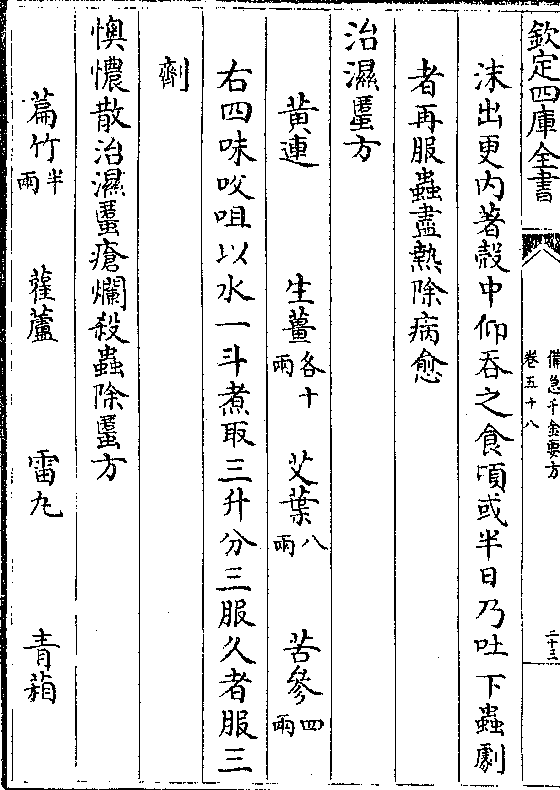 欽定四庫全書
備急千金要方
卷五十八
二十三
沫出更内著殻中仰吞之食頃或半日乃吐下蟲劇
者再服蟲盡熱除病愈
治濕䘌方
黄連 生薑各十兩 艾葉八兩 苦參四兩
右四味㕮咀以水一斗煮取三升分三服久者服三
劑
懊憹散治濕䘌瘡爛殺蟲除䘌方
萹竹半兩 雚蘆 雷丸 青葙